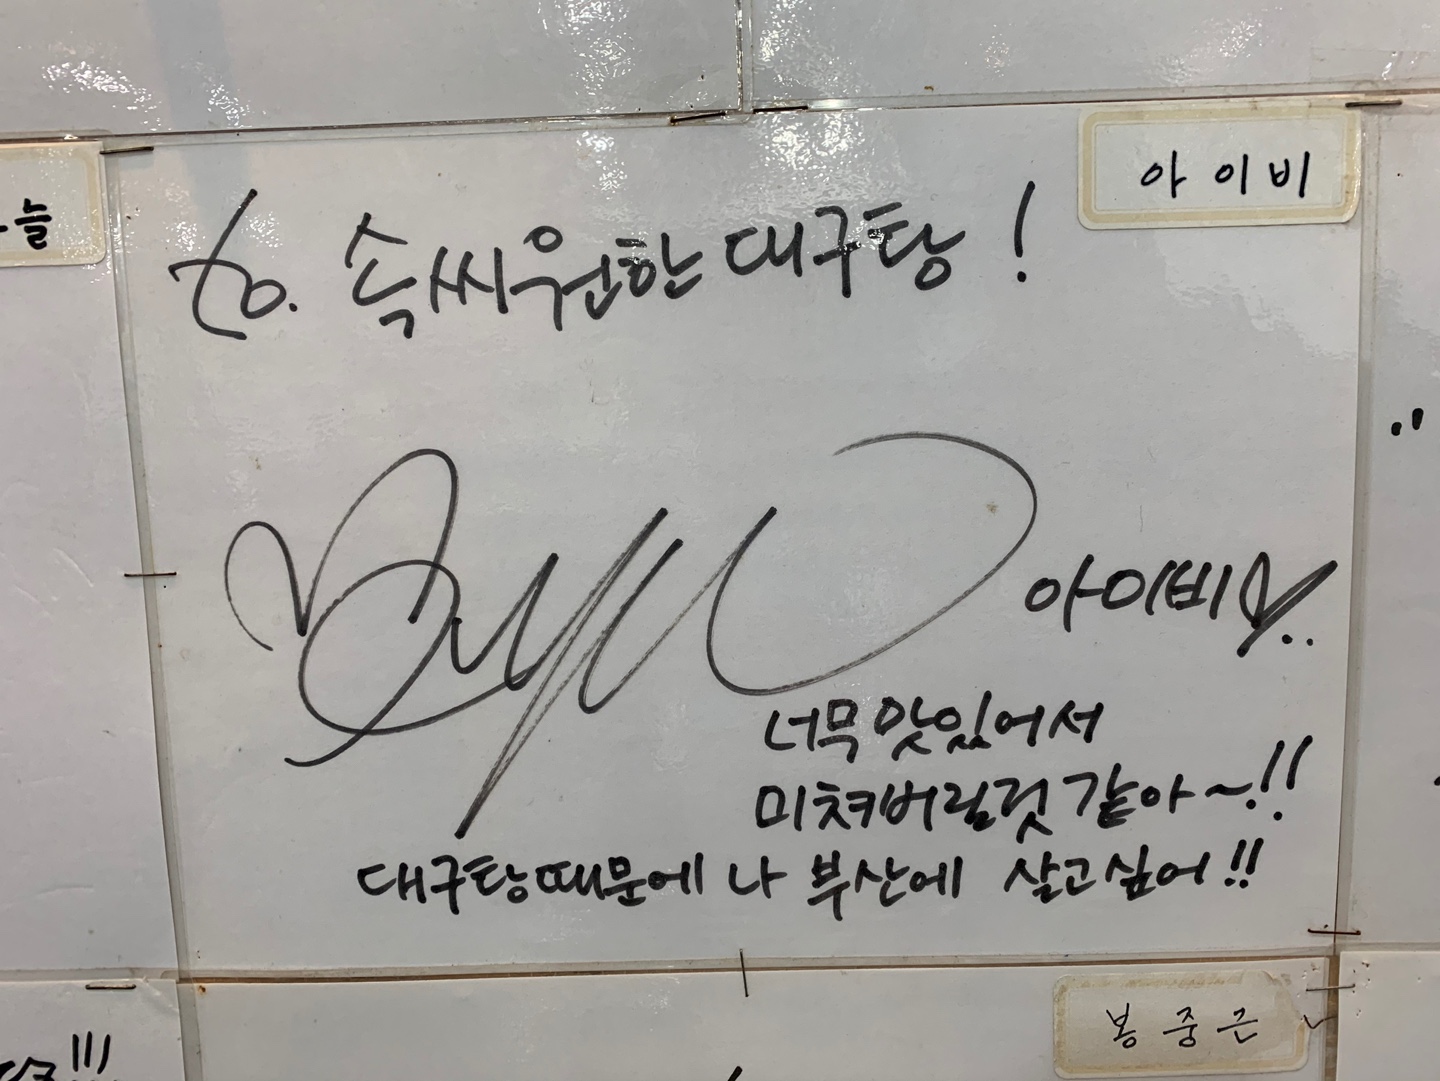 늘
아이비
to. 속씨원한 대구탕!
아이비
너무 맛있어서
미쳐버릴것 같아~!!
대구탕때문에 나 부산에 살고싶어!!
봉중근
!!!